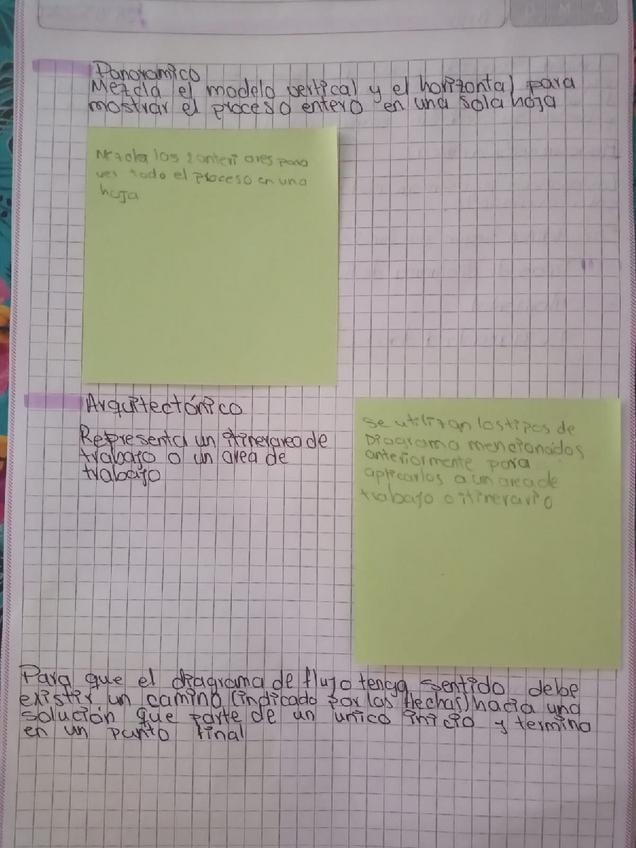 D M A
Panoramico
Mezcla el modelo vertical y el horizontal para
mostrar el proceso entero en una sola hoja
Mezcla los 2 anteriores para
ver todo el proceso en una
hoja
Arquitectónico
Representa un itinerareo de
trabajo o un area de
trabajo
se utilizan los tipos de
Diagrama mencionados
anteriormente para
aplicarlos a un area de
trabajo o itinerario
Para que el diagrama de flujo tenga sentido debe
existir un camino (indicado por las flechas) hacia una
solución que parte de un unico inicio y termino
en un punto final